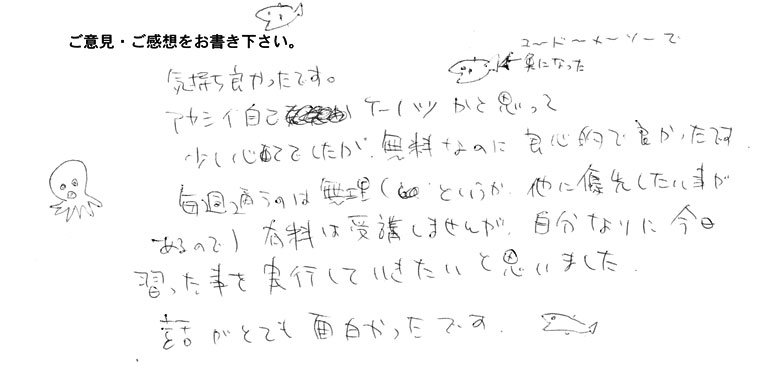 ご意見・ご感想をお書き下さい。
ユードーメーソーで
魚になった
気持ち良かったです。
アヤシイ自己ケーハツかと思って
少し心配でしたが、無料なのに良心的で良かったです
毎週通うのは無理(というか、他に優先したい事が
あるので)有料は受講しませんが、自分なりに今日
習った事を実行していきたいと思いました.
話がとても面白かったです.